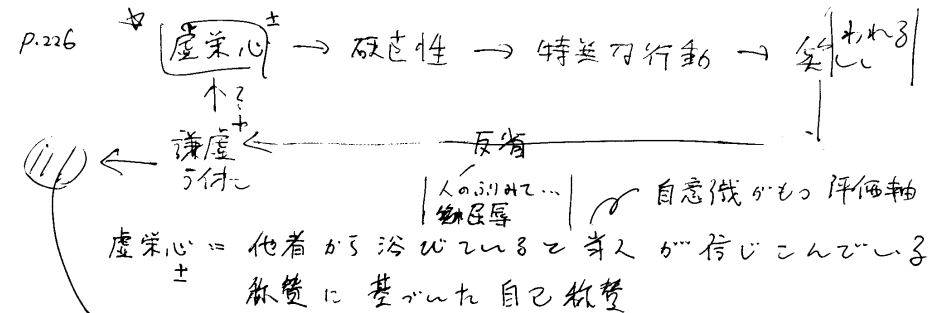 p.226 虚栄心± → 硬直性 → 特異な行動 → 笑|われる
↑?
謙虚+ ← 反省
人のふりみて…
屈辱
自意識がもつ評価軸
虚栄心± = 他者から浴びていると当人が信じこんでいる
称賛に基づいた自己称賛